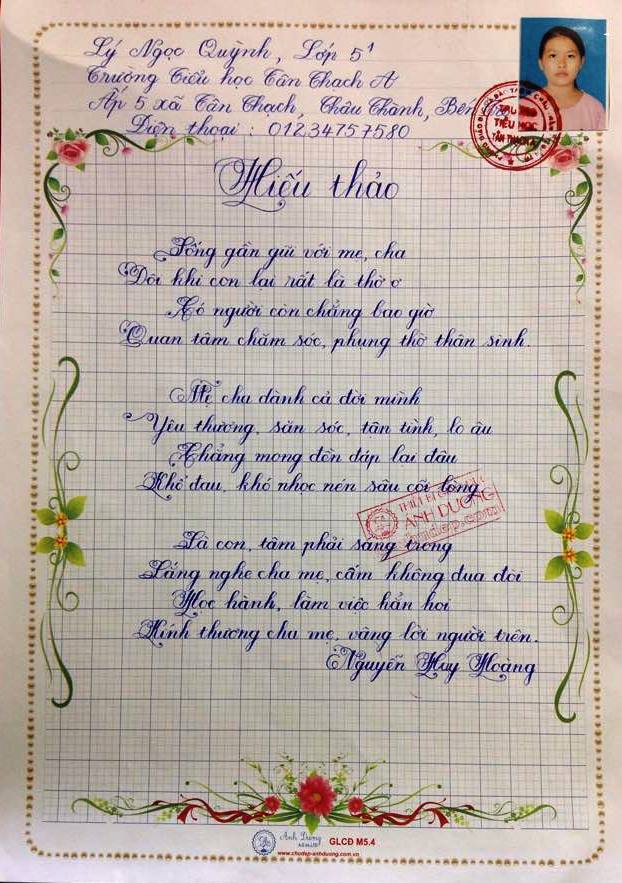 Lý Ngọc Quỳnh, Lớp 5¹
Trường Tiểu học Tân Thạch A
Ấp 5 xã Tân Thạch, Châu Thành, Bến
Điện thoại : 01234757580
TRƯỜNG
TIỂU HỌC
TÂN THẠCH A
Hiếu thảo
Sống gần gũi với mẹ, cha
Đôi khi con lại rất là thờ ơ
Có người còn chẳng bao giờ
Quan tâm chăm sóc, phụng thờ thân sinh.
Mẹ cha dành cả đời mình
Yêu thương, săn sóc, tận tình, lo âu
Chẳng mong đền đáp lại đâu
Khổ đau, khó nhọc nén sâu cõi lòng
ÁNH DƯƠNG
Là con, tâm phải sáng trong
Lắng nghe cha mẹ, cấm không đua đòi
Học hành, làm việc hẳn hoi
Kính thương cha mẹ, vâng lời người trên.
Nguyễn Huy Hoàng
Ánh Dương
GLCĐ M5.4
www.chudep-anhduong.com.vn